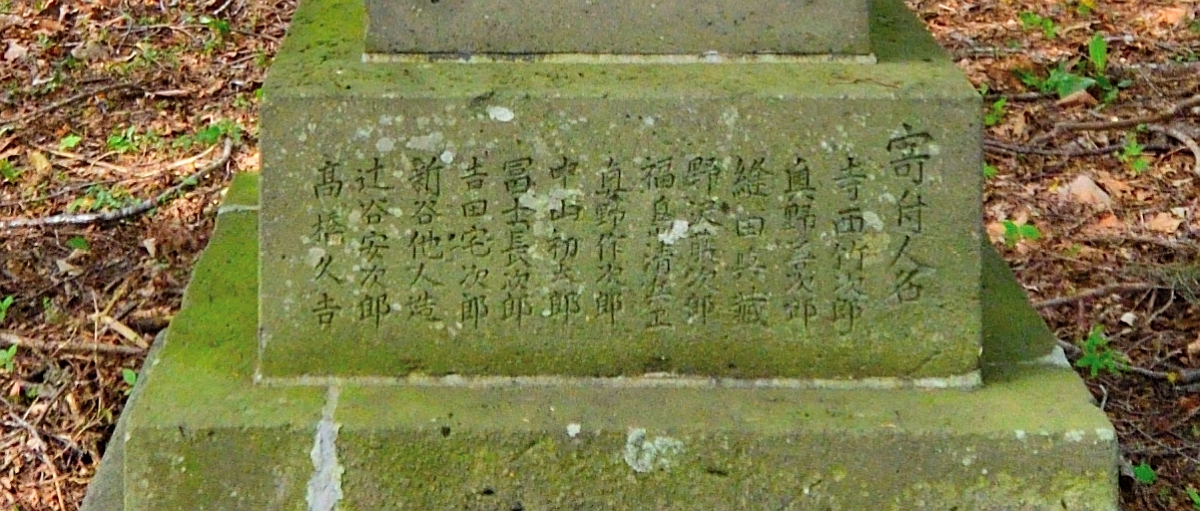 寄付人名
寺西竹次郎
真野 次郎
縫田兵蔵
野沢 次郎
福島清
真野作次郎
中山初太郎
冨士長次郎
吉田宅次郎
新谷他人造
辻谷安次郎
髙橋久吉